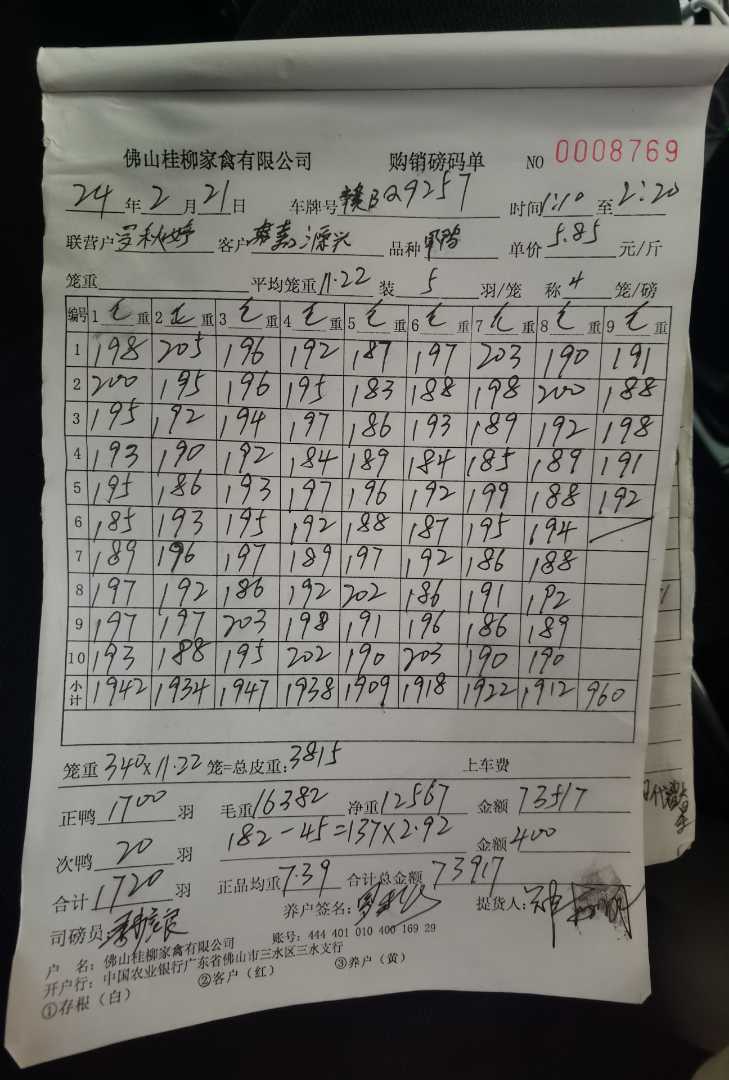 佛山桂柳家禽有限公司 购销磅码单 NO 0008769
24年2月21日 车牌号 赣B29257 时间1:10至2:20
联营户 罗秋婷 客户 源兴 品种 单价5.85元/斤
笼重 平均笼重11.22 装5羽/笼 称4笼/磅
编号 1毛重 2毛重 3毛重 4毛重 5毛重 6毛重 7毛重 8毛重 9毛重
1 198 205 196 192 187 197 203 190 191
2 200 195 196 195 183 188 198 200 188
3 195 192 194 197 186 193 189 192 198
4 193 190 192 184 189 184 185 189 191
5 195 186 193 197 196 192 199 188 192
6 185 193 195 192 188 187 195 194
7 189 196 197 189 197 192 186 188
8 197 192 186 192 202 186 191 192
9 197 197 203 198 191 196 186 189
10 193 188 195 202 190 203 190 190
小计 1942 1934 1947 1938 1909 1918 1922 1912 960
笼重 340×11.22 笼=总皮重:3815 上车费
正鸭1700羽 毛重16382 净重12567 金额73517
次鸭20羽 182-45=137×2.92 金额400
合计1720羽 正品均重7.39 合计总金额73917
司磅员: 养户签名: 提货人:
户 名:佛山桂柳家禽有限公司 账号:444 401 010 400 169 29
开户行:中国农业银行广东省佛山市三水区三水支行
①存根(白) ②客户(红) ③养户(黄)